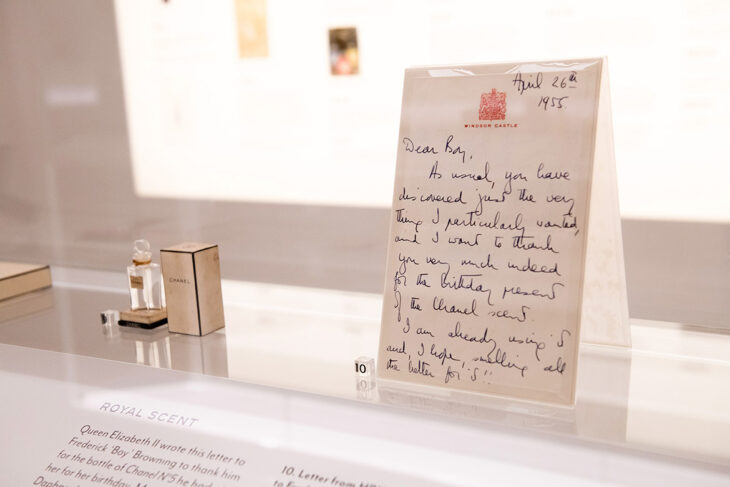 April 26th
1955
WINDSOR CASTLE
Dear Boy,
As usual, you have
discovered just the very
thing I particularly wanted,
and I want to thank
you very much indeed
for the birthday present
of the Chanel scent.
I am already using it
and, I hope, smelling all
the better for it!!
CHANEL
10
ROYAL SCENT
Queen Elizabeth II wrote this letter to
Frederick 'Boy' Browning to thank him
for the bottle of Chanel N°5 he had
her for her birthday.
10. Letter from
to